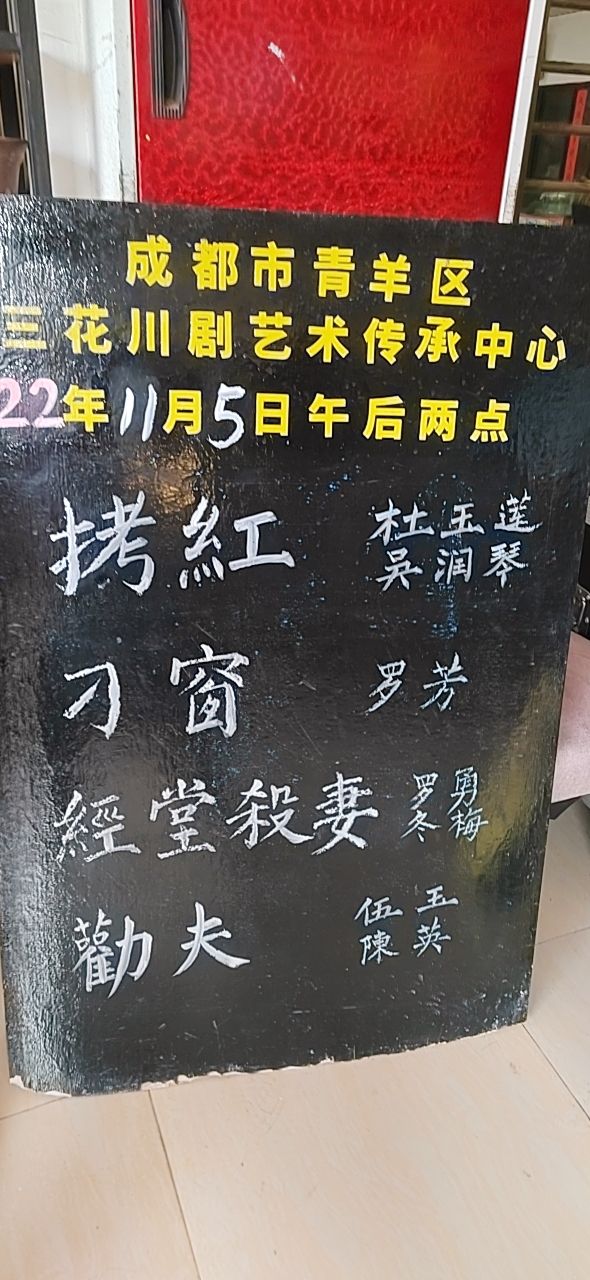 成都市青羊区
三花川剧艺术传承中心
22年11月5日午后两点
拷紅 杜玉莲
吴润琴
刁窗 罗芳
經堂殺妻 罗勇
冬梅
勸夫 伍玉
陳英